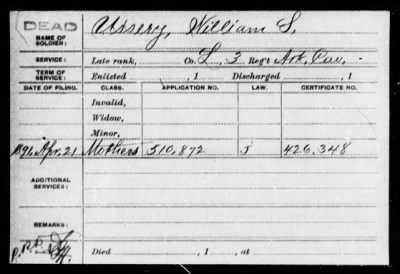 DEAD
NAME OF SOLDIER: Ussery, William S.
SERVICE: Late rank, Co. L, 3 Reg't Ark. Cav.
TERM OF SERVICE: Enlisted , 1 Discharged , 1
DATE OF FILING. CLASS. APPLICATION NO. LAW. CERTIFICATE NO.
Invalid,
Widow,
Minor,
1892 Apr. 21 Mothers 510,872 J 426,348
ADDITIONAL SERVICES:
REMARKS:
Died , 1 , at